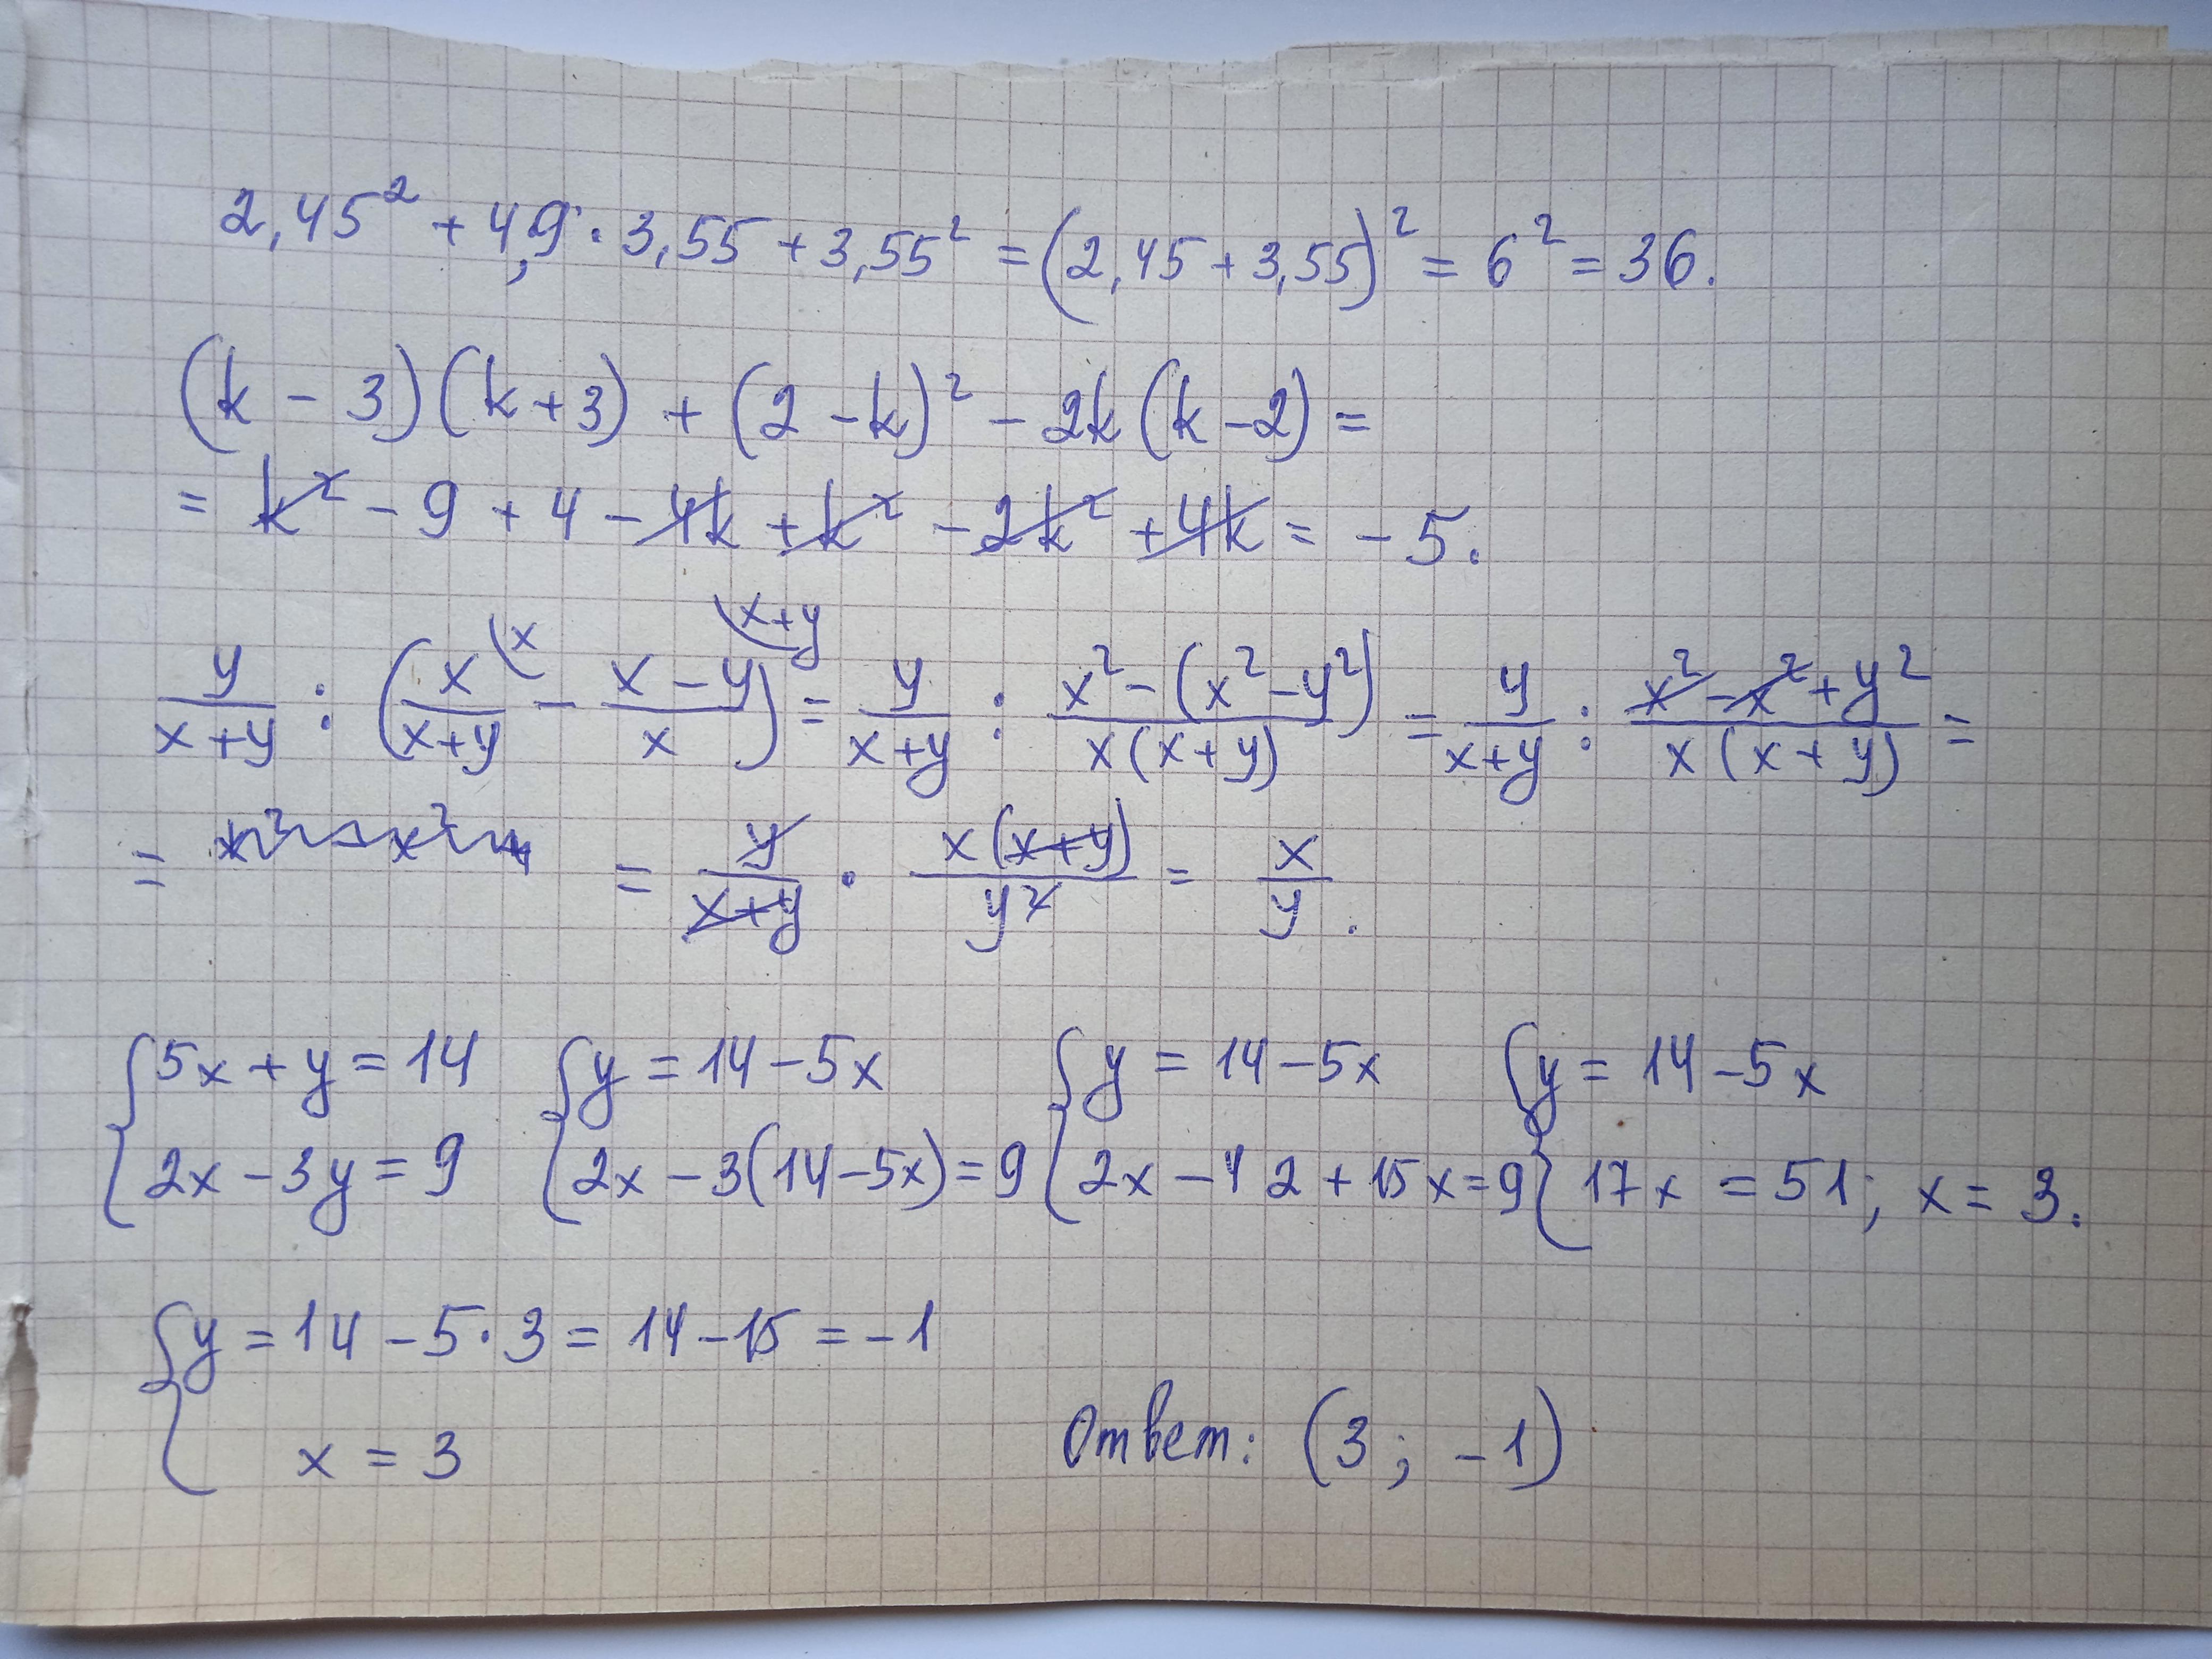 2,45² + 4,9 · 3,55 + 3,55² = (2,45 + 3,55)² = 6² = 36.
(k − 3)(k + 3) + (2 − k)² − 2k (k − 2) =
= k² − 9 + 4 − 4k + k² − 2k² + 4k = − 5.
y/(x + y) : (x/(x+y) \x − (x − y)/x \x+y) = y/(x+y) : (x² − (x² − y²))/(x(x+y)) = y/(x+y) : (x² − x² + y²)/(x(x + y)) =
= = y/(x+y) · x(x+y)/y² = x/y.
{5x + y = 14 {y = 14 − 5x {y = 14 − 5x {y = 14 − 5x
{2x − 3y = 9 {2x − 3(14 − 5x) = 9 {2x − 42 + 15x = 9 {17x = 51; x = 3.
{y = 14 − 5 · 3 = 14 − 15 = − 1
x = 3
Ответ: (3; −1)